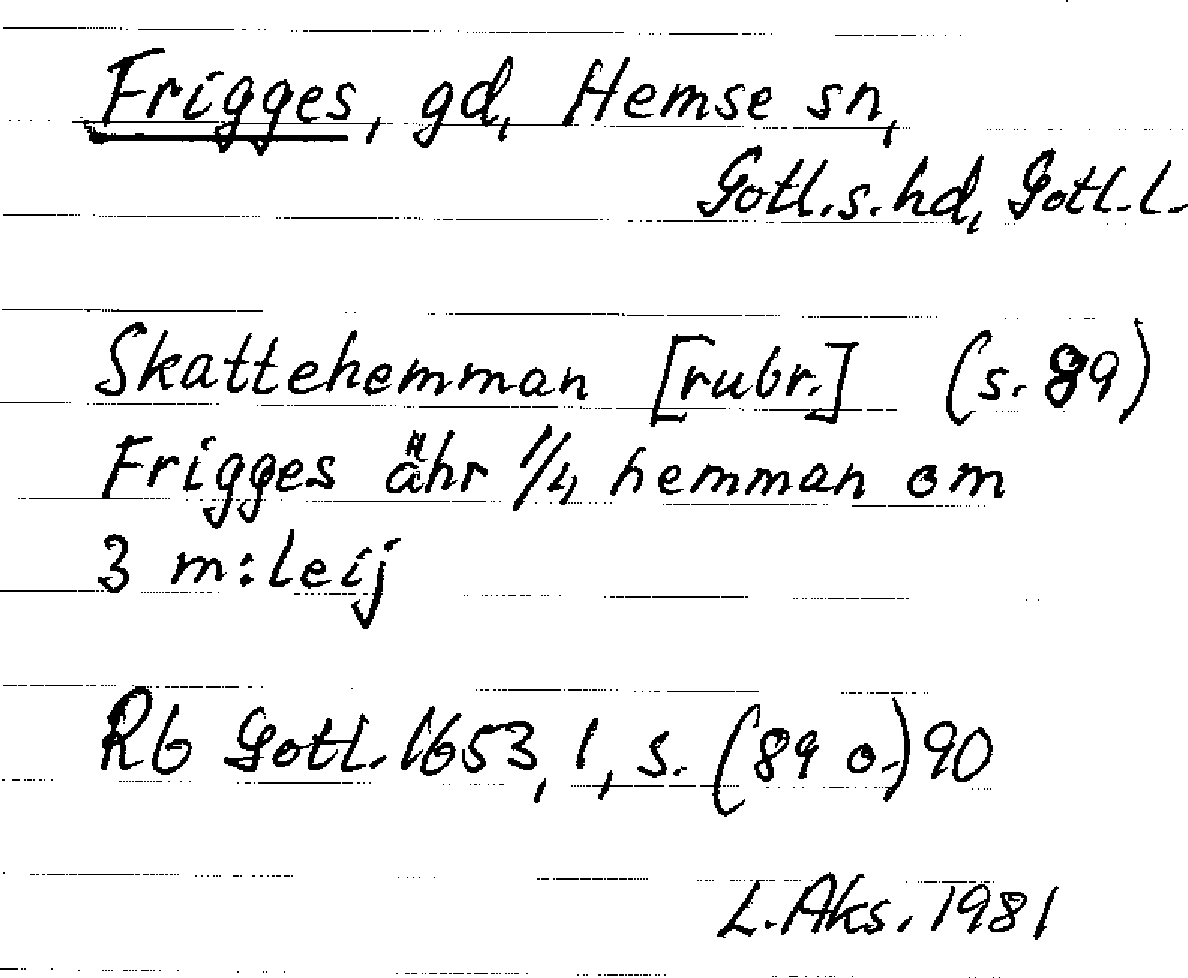 Frigges, gd, Hemse sn,
Gotl.s.hd, Gotl.l.
Skattehemman [rubr.] (s. 89)
Frigges ähr 1/4 hemman om
3 m:leij
Rb Gotl. 1653, 1, s. (89 o.) 90
L.Aks. 1981